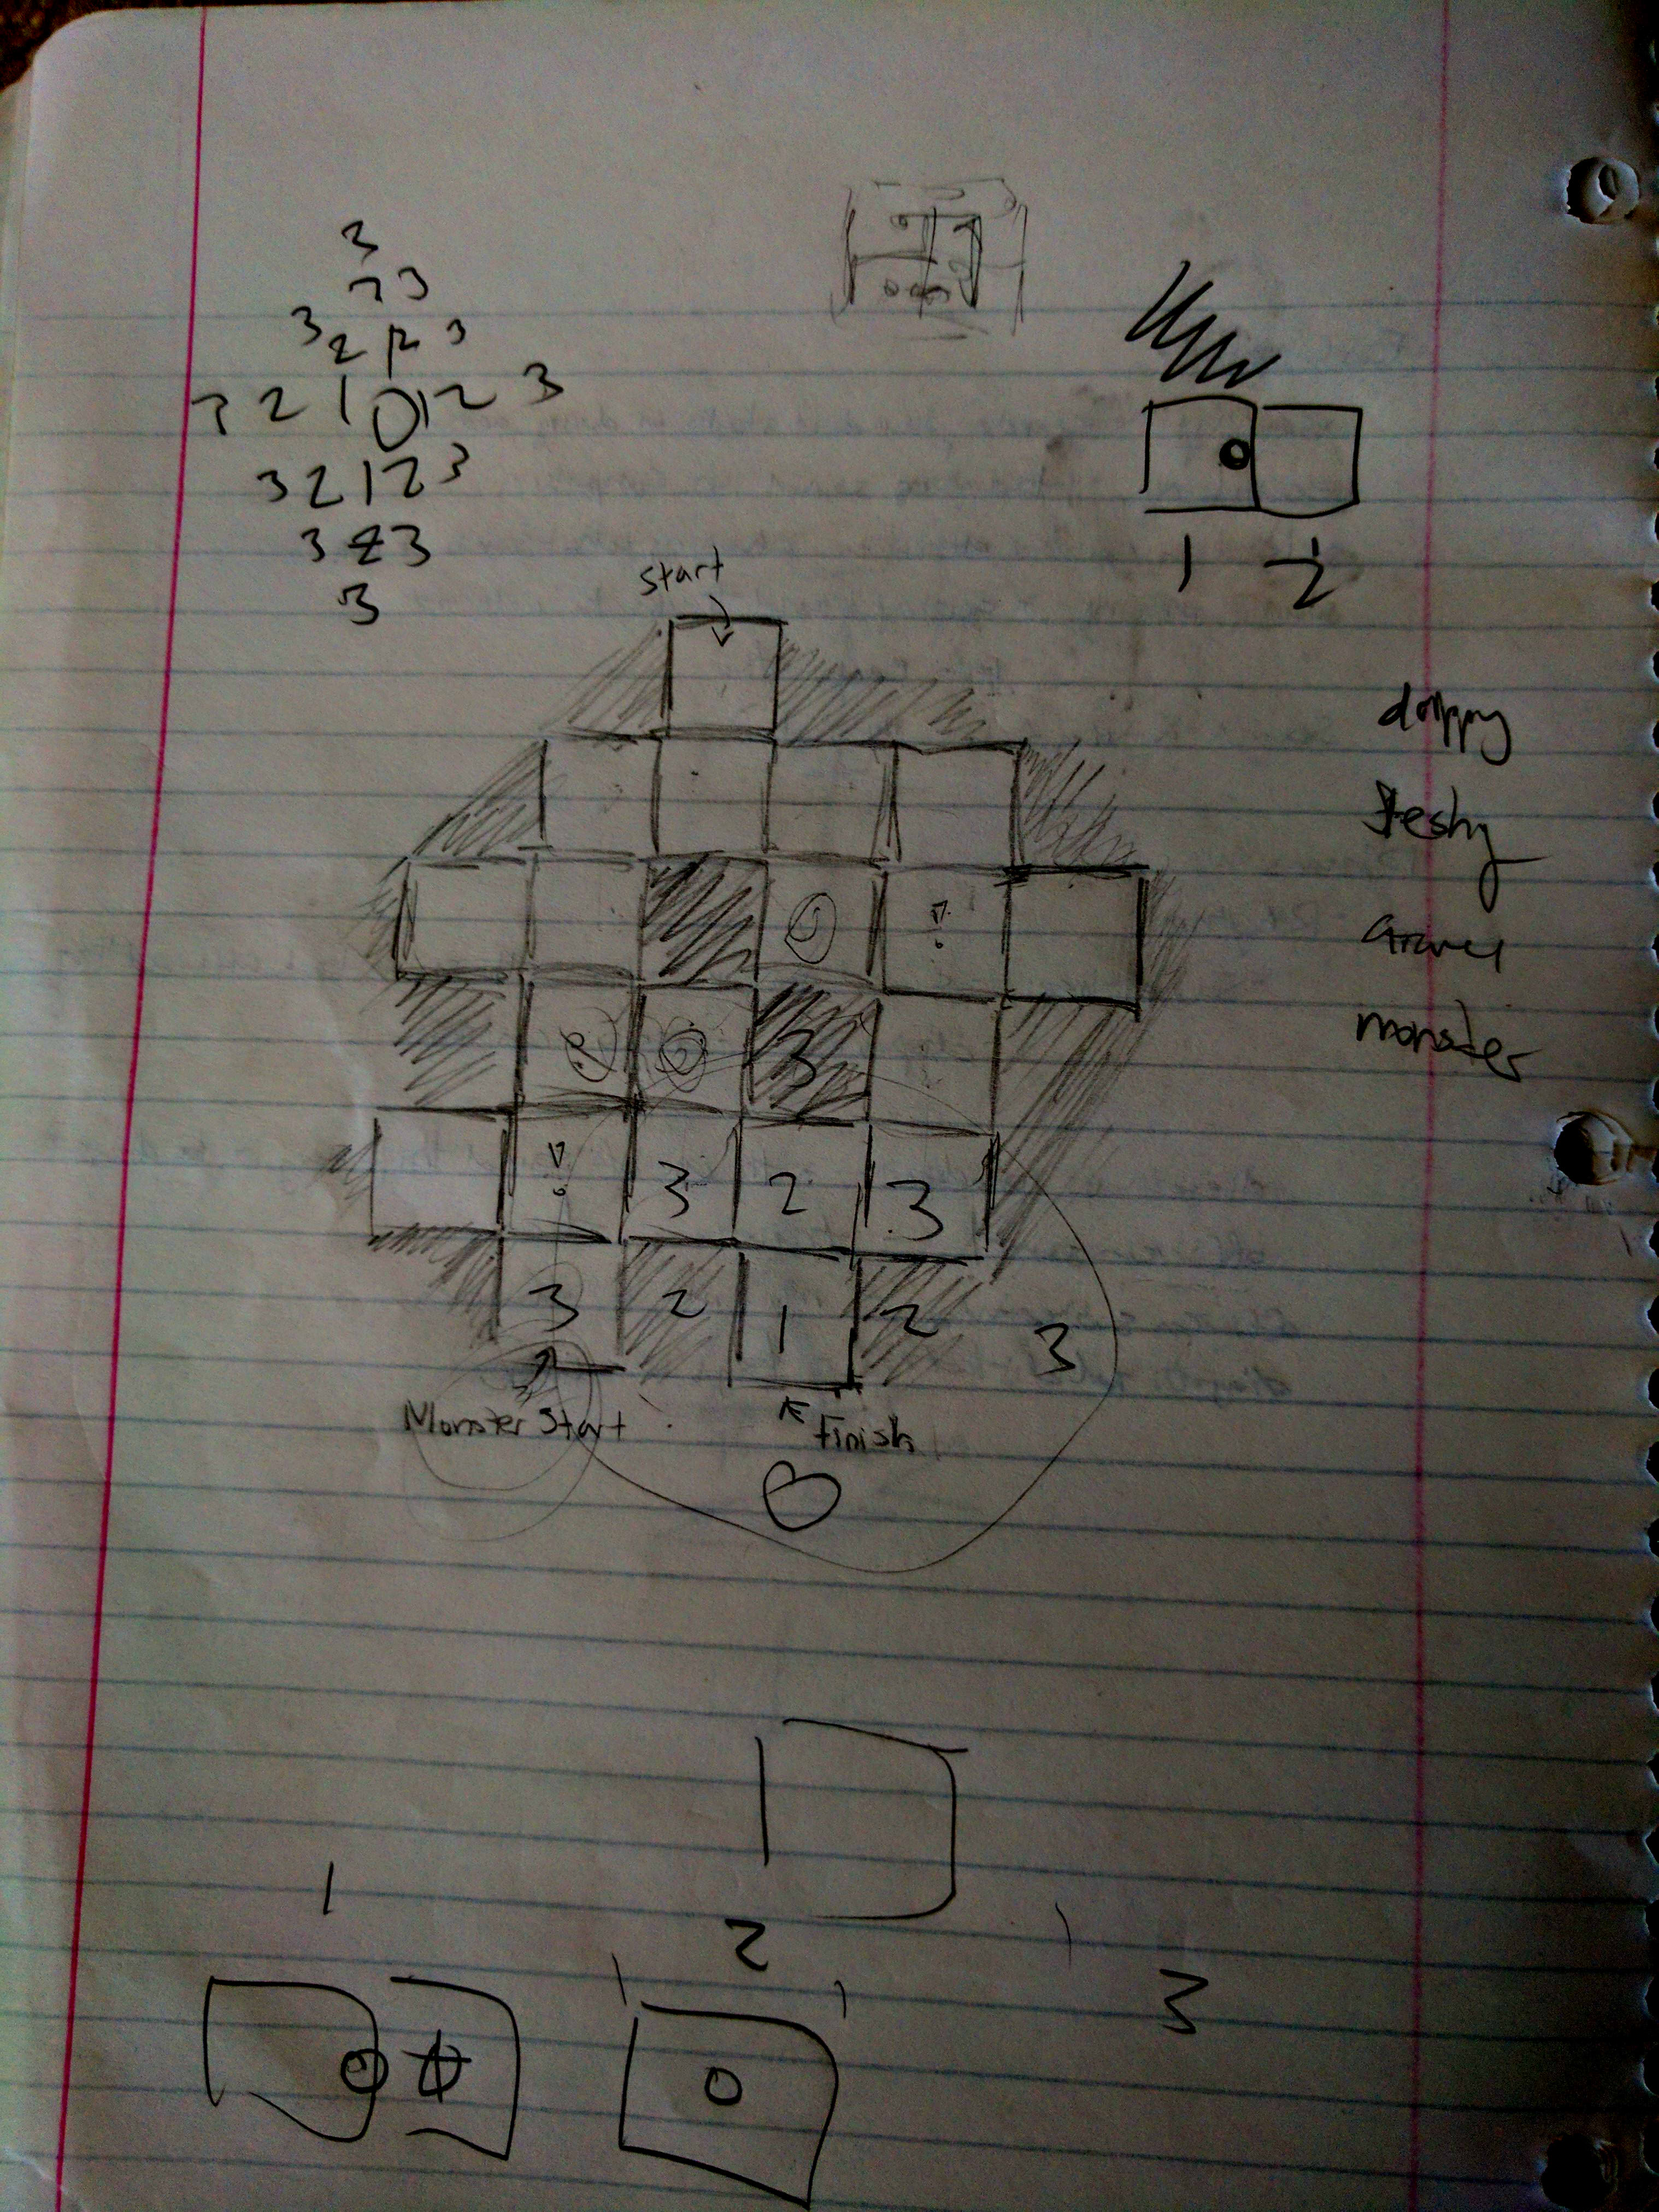 3
3
3 2 1 2 3
3 2 1 0 1 2 3
3 2 1 2 3
3 2 3
3
1 2
start
drippy
fleshy
Gravel
monster
3
3 2 3
3 2 1 2 3
Monster Start
Finish
0
1
2
3